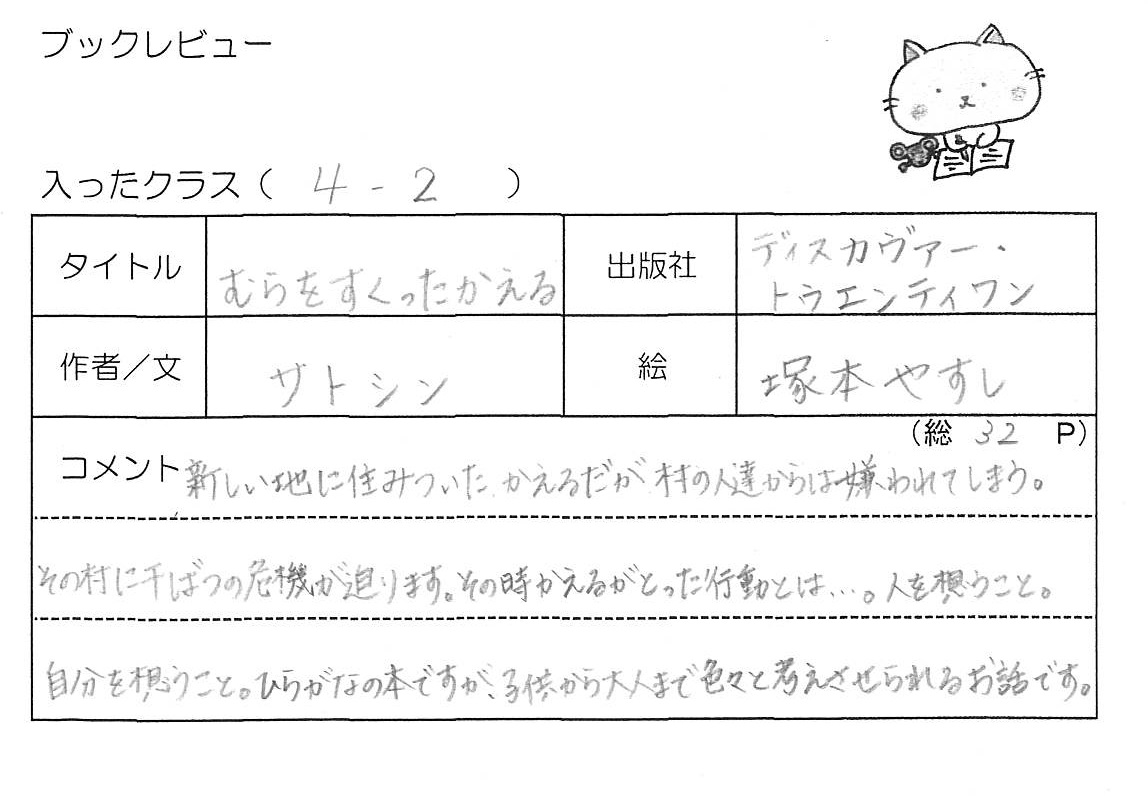 ブックレビュー
入ったクラス（ 4 - 2 ）
タイトル
むらをすくったかえる
出版社
ディスカヴァー・
トウエンティワン
作者／文
サトシン
絵
塚本やすし
（総 32 P）
コメント 新しい地に住みついたかえるだが村の人達からは嫌われてしまう。
その村に干ばつの危機が迫ります。その時かえるがとった行動とは…。人を想うこと。
自分を想うこと。ひらがなの本ですが、子供から大人まで色々と考えさせられるお話です。